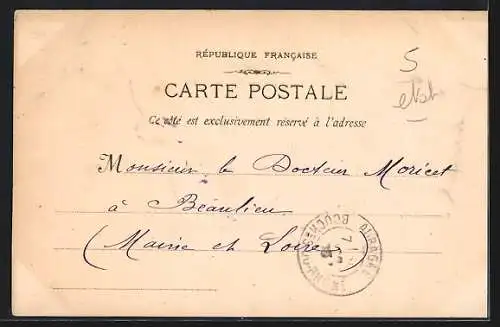 RÉPUBLIQUE FRANÇAISE
5
CARTE POSTALE
Ce côté est exclusivement réservé à l'adresse
Monsieur le Docteur Moricet
à Beaulieu
(Maine et Loire)